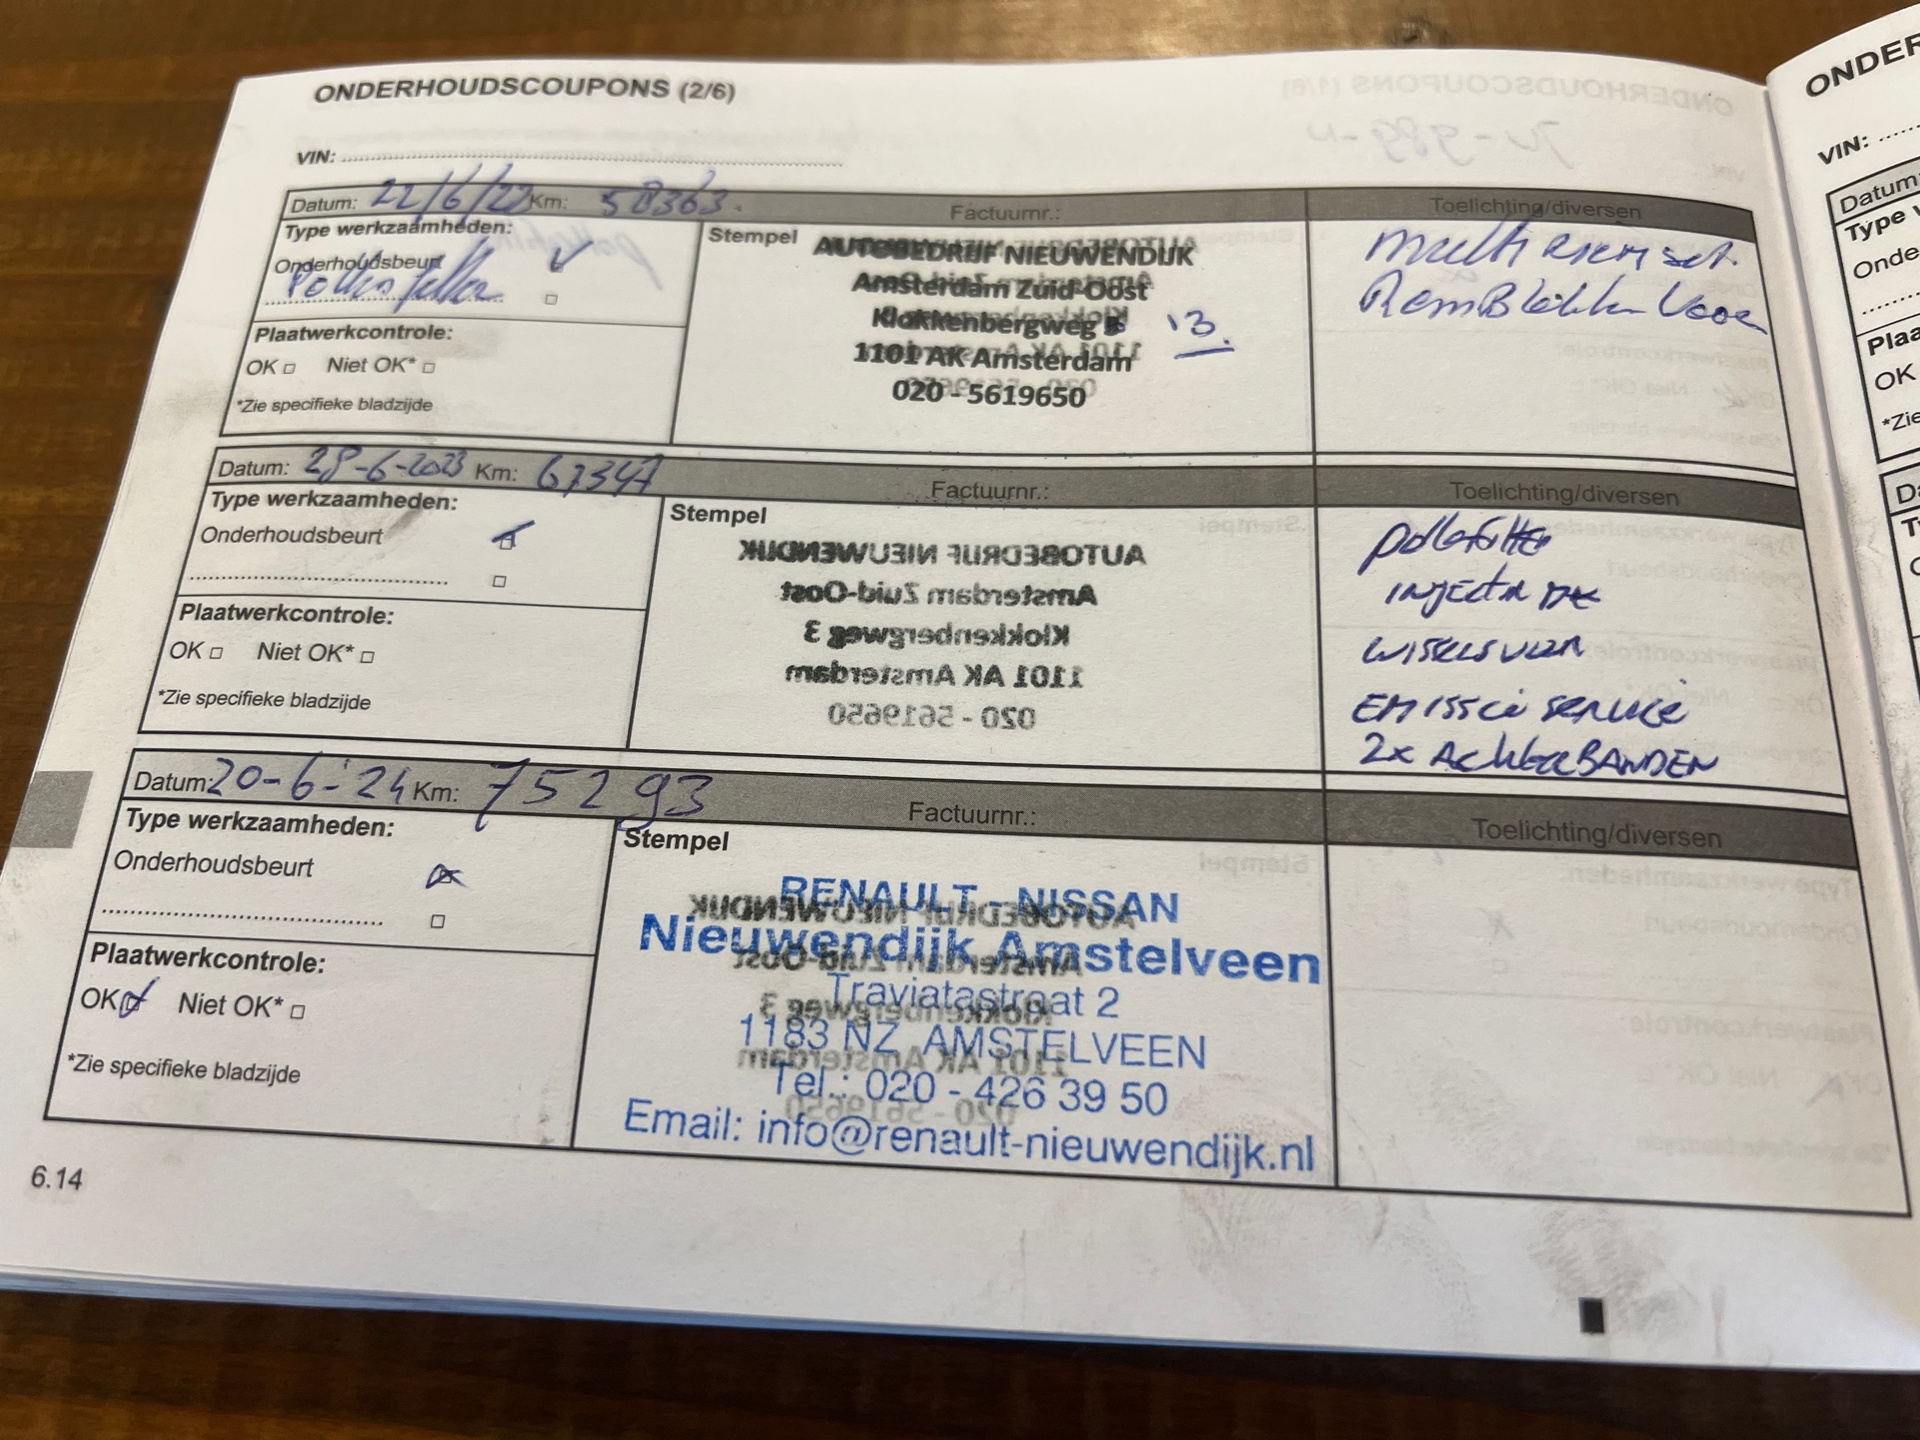 ONDERHOUDSCOUPONS (2/6)
VIN:
Datum: 22/6/22 Km: 58363. Factuurnr.: Toelichting/diversen
Type werkzaamheden:
Onderhoudsbeurt
Pollenfilter
Plaatwerkcontrole:
OK Niet OK*
*Zie specifieke bladzijde
Stempel
AUTOBEDRIJF NIEUWENDIJK
Amsterdam Zuid-Oost
Klokkenbergweg 13.
1101 AK Amsterdam
020 - 5619650
Multi riem set.
RemBlokken Voor
Datum: 28-6-2023 Km: 67347 Factuurnr.: Toelichting/diversen
Type werkzaamheden:
Onderhoudsbeurt
Plaatwerkcontrole:
OK Niet OK*
*Zie specifieke bladzijde
Stempel
AUTOBEDRIJF NIEUWENDIJK
Amsterdam Zuid-Oost
Klokkenbergweg 3
1101 AK Amsterdam
020 - 5619650
pollenfilter
wissers voor
EMissie service
2x AchterBANDEN
Datum: 20-6-'24 Km: 75293 Factuurnr.: Toelichting/diversen
Type werkzaamheden:
Onderhoudsbeurt
Plaatwerkcontrole:
OK Niet OK*
*Zie specifieke bladzijde
Stempel
RENAULT - NISSAN
Nieuwendijk Amstelveen
Traviatastraat 2
1183 NZ AMSTELVEEN
Tel.: 020 - 426 39 50
Email: info@renault-nieuwendijk.nl
6.14
ONDER
VIN:
Datum:
Type
Onde
Plaa
OK
*Zie